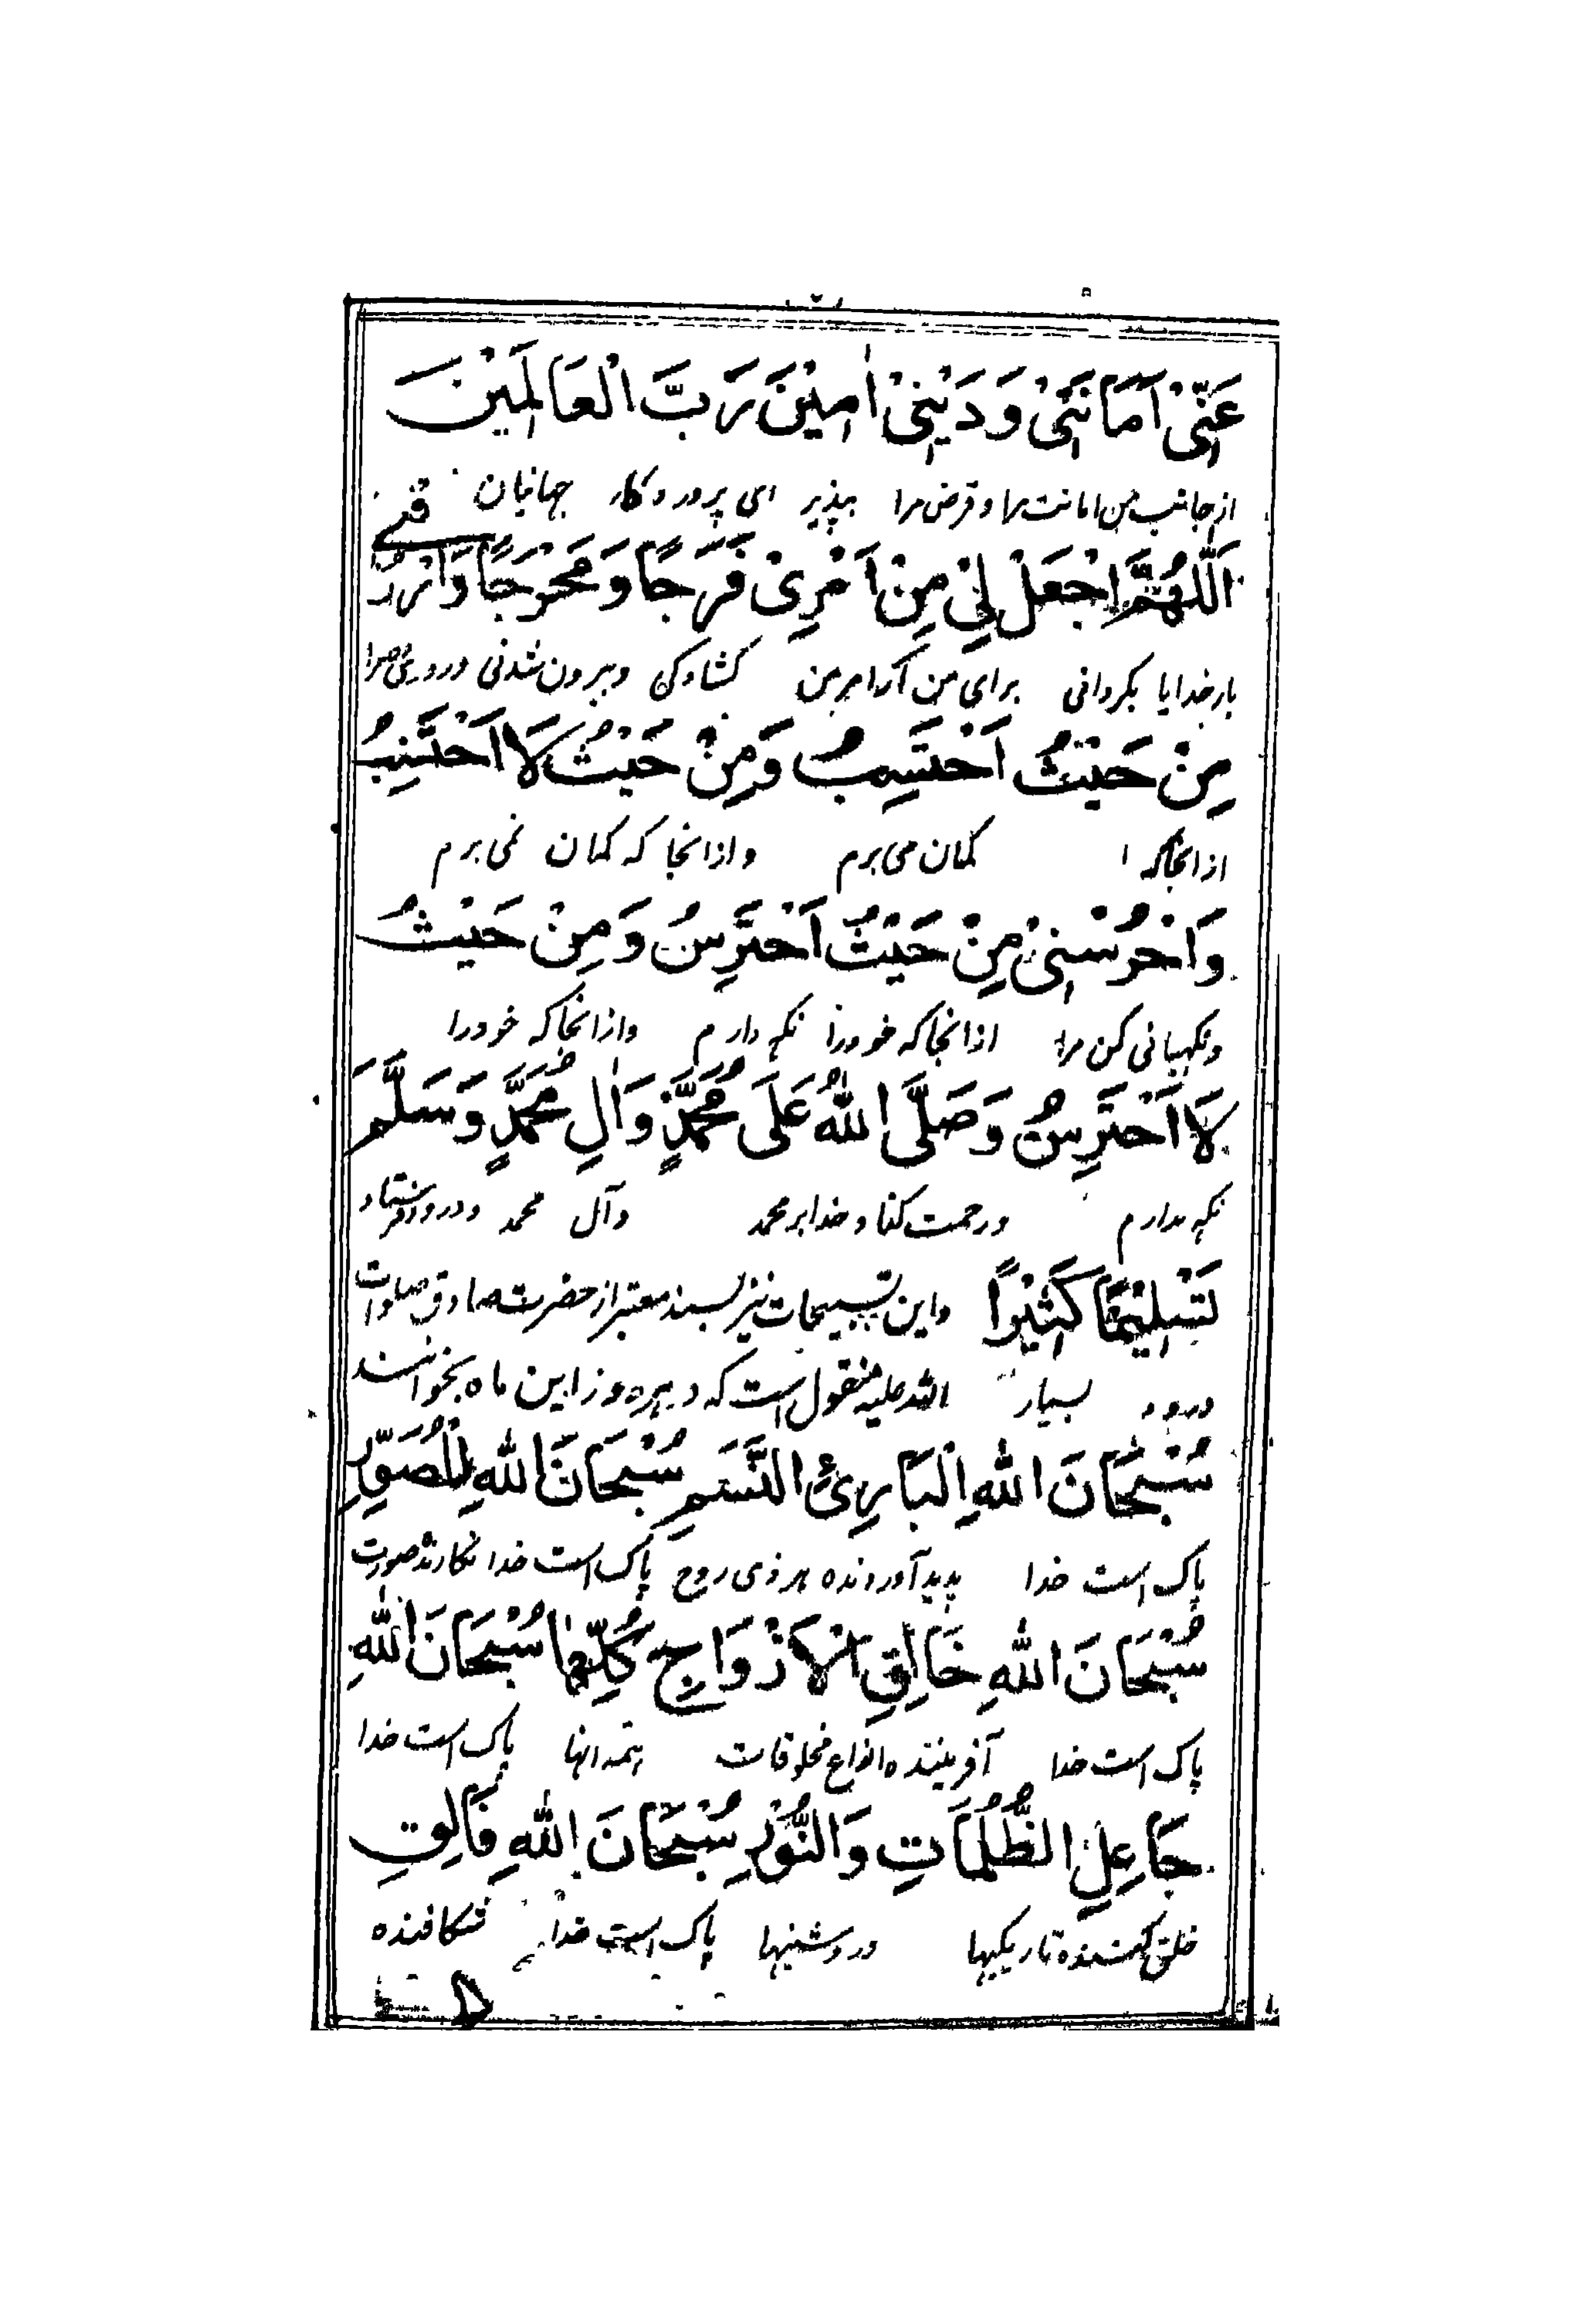 عَنِّیْ اَمَانَتِیْ وَدَیْنِیْ اٰمِیْنَ رَبَّ الْعَالَمِیْنَ
از جانب من امانت مرا و قرض مرا بپذیر ای پروردکار جهانیان
اَللّٰهُمَّ اجْعَلْ لِیْ مِنْ اَمْرِیْ فَرَجًا وَمَخْرَجًا وَارْزُقْنِیْ
بارخدایا بکردانی برای من از امر من کشادکی و بیرون شدنی و روزی ده مرا
مِنْ حَیْثُ اَحْتَسِبُ وَمِنْ حَیْثُ لَا اَحْتَسِبُ
از انجا که کمان می برم و از انجا که کمان نمی برم
وَاحْرُسْنِیْ مِنْ حَیْثُ اَحْتَرِسُ وَمِنْ حَیْثُ
و نکهبانی کن مرا از انجا که خود را نکه دارم و از انجا که خود را
لَا اَحْتَرِسُ وَصَلَّی اللّٰهُ عَلَی مُحَمَّدٍ وَاٰلِ مُحَمَّدٍ وَسَلَّمَ
نکه ندارم و رحمت کناد خدا بر محمد و آل محمد و درود فرستاد
تَسْلِیْمًا کَثِیْرًا و این تسبیحات نیز بسند معتبر از حضرت صادق صلوات
درود بسیار اللّه علیه منقول است که در هر روز این ماه بخوانند
سُبْحَانَ اللّٰهِ الْبَارِئِ النَّسَمِ سُبْحَانَ اللّٰهِ الْمُصَوِّرِ
پاک است خدا پدید آورنده هر ذی روح پاک است خدا نکارنده صورت
سُبْحَانَ اللّٰهِ خَالِقِ الْاَزْوَاجِ کُلِّهَا سُبْحَانَ اللّٰهِ
پاک است خدا آفریننده انواع مخلوقات همه انها پاک است خدا
جَاعِلِ الظُّلُمَاتِ وَالنُّوْرِ سُبْحَانَ اللّٰهِ فَالِقِ
خلق کننده تاریکیها و روشنیها پاک است خدا شکافنده